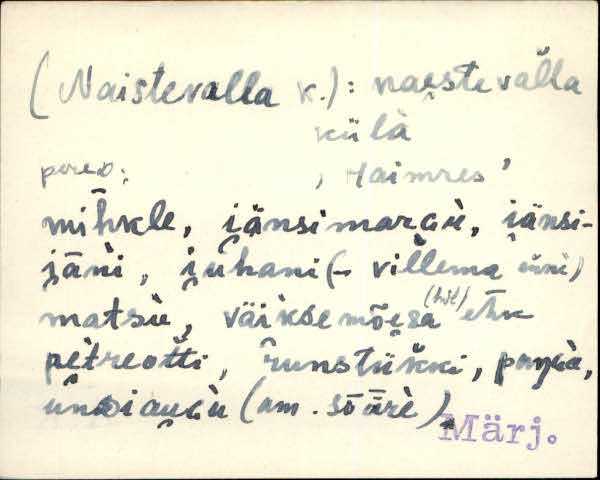 (Naistevalla k.): naestevalla
külà
pered: , Haimres '
mihkle, iänsimarGù, iänsi-
jäni, juhani (- villema ùni)
matsù, väikse mõesa (hil) ehk
pètreotti, runstükki, 
(am. sääre),
Märj.